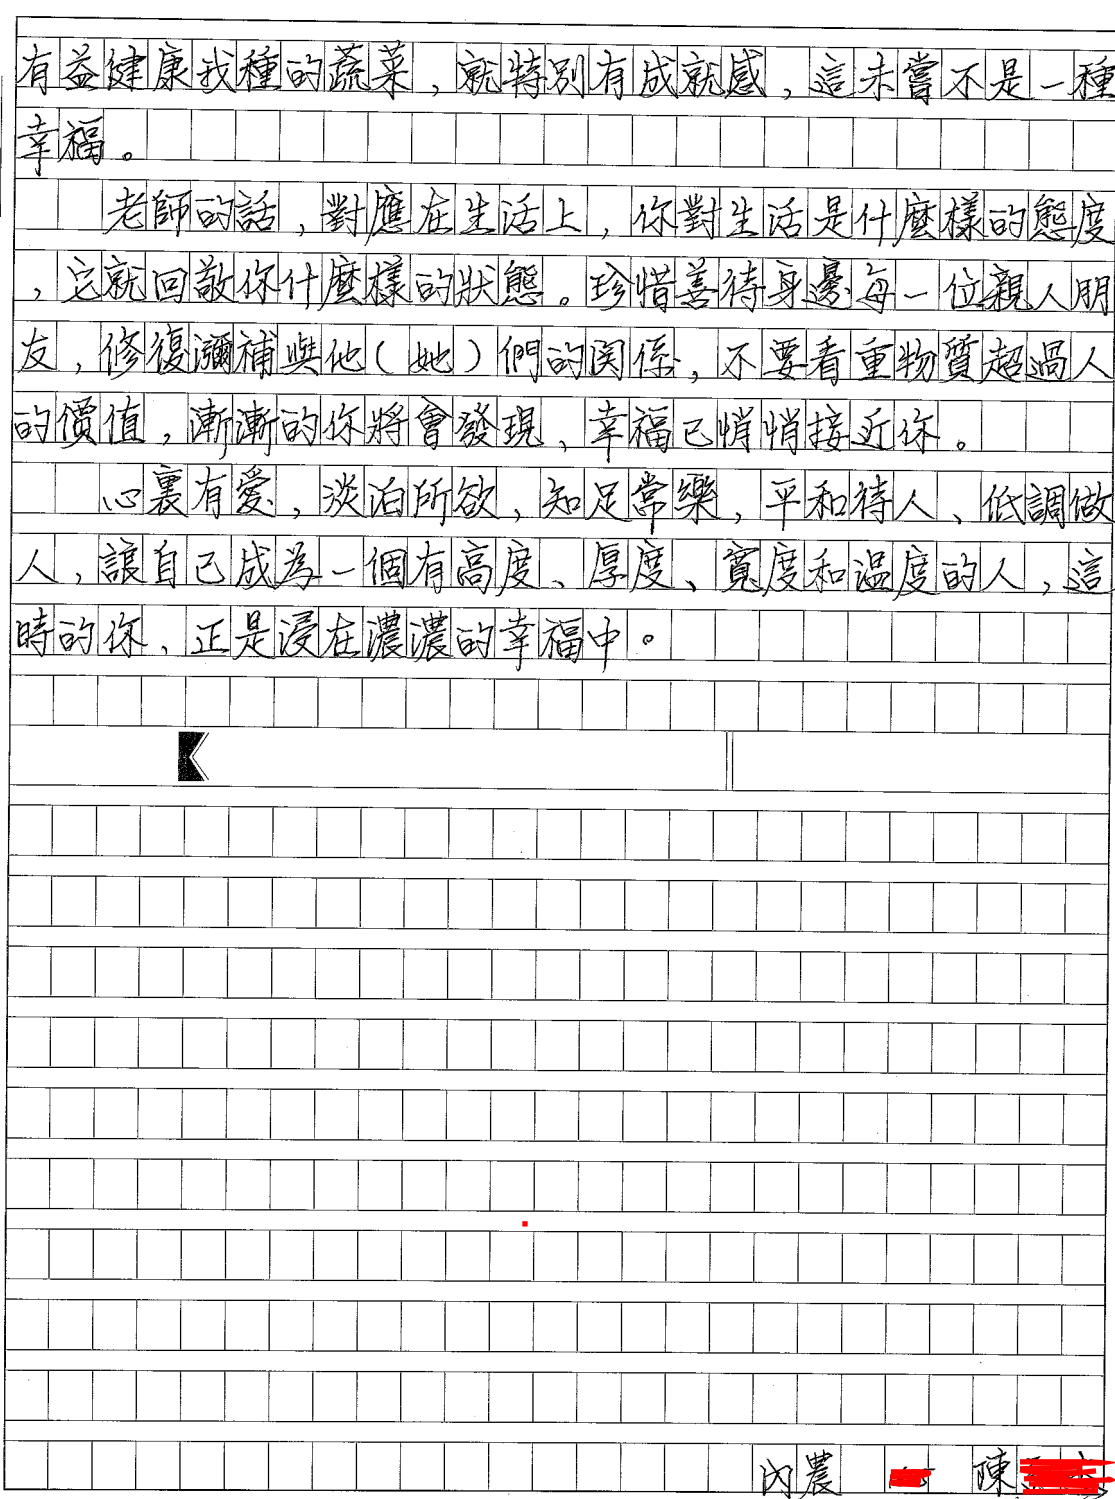 有益健康我種的蔬菜，就特別有成就感，這未嘗不是一種
幸福。
老師的話，對應在生活上，你對生活是什麼樣的態度
，它就回敬你什麼樣的狀態。珍惜善待身邊每一位親人朋
友，修復瀰補與他（她）們的関係，不要看重物質超過人
的價值，漸漸的你將會發現，幸福已悄悄接近你。
心裏有愛，淡泊所欲，知足常樂，平和待人、低調做
人，讓自己成為一個有高度、厚度、寬度和溫度的人，這
時的你，正是浸在濃濃的幸福中。
內農 陳